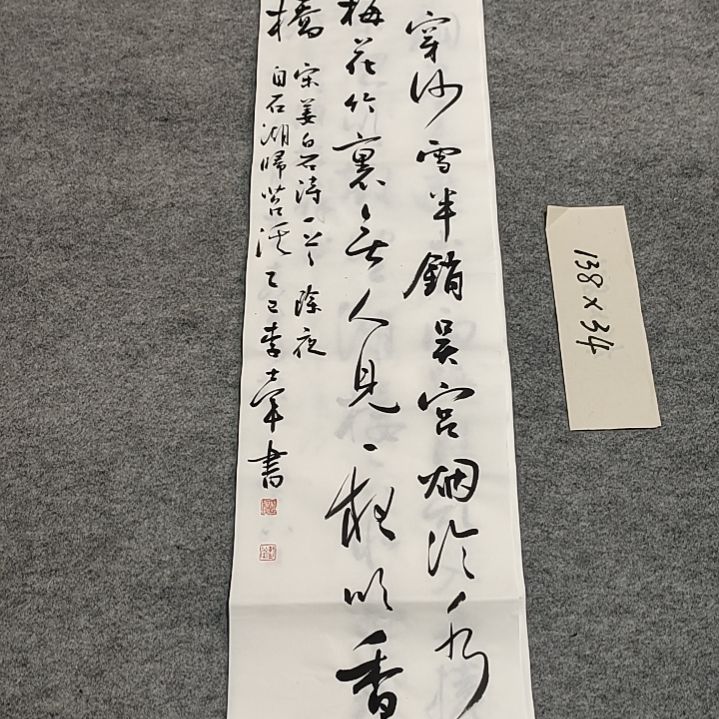 穿沙雪半銷吴宫烟冷水
梅花竹裏無人見一夜吹香
橋
宋姜白石詩一首除夜
自石湖歸苕溪乙巳李書
138×34